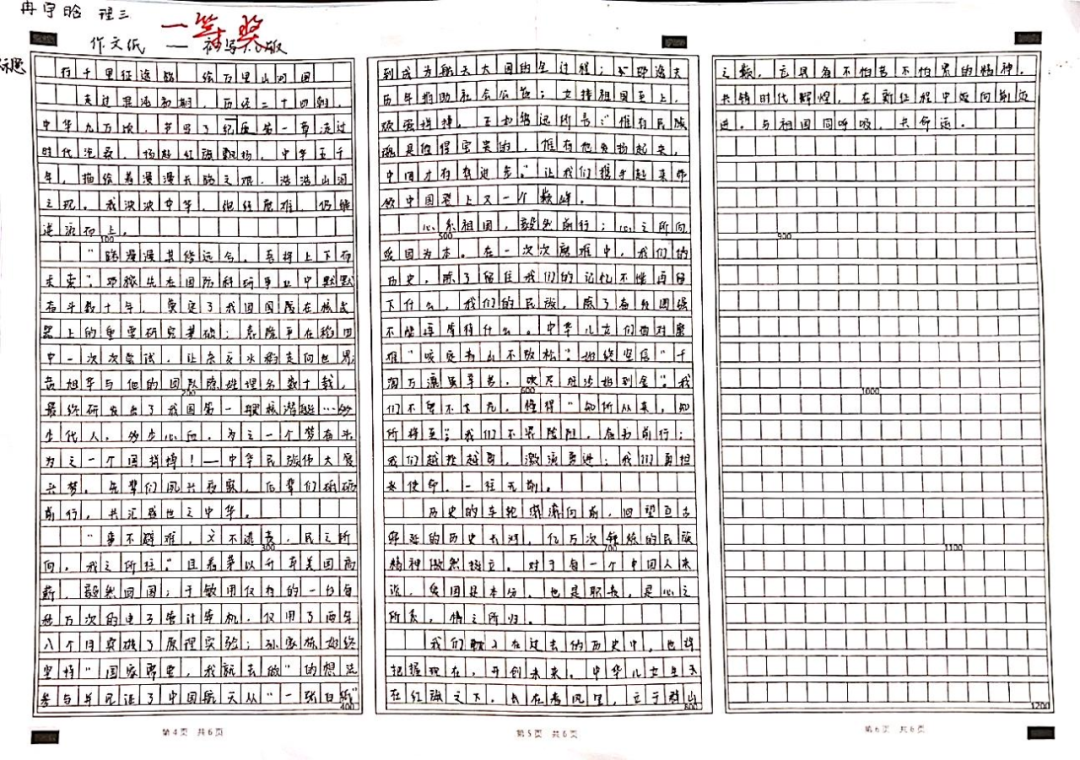 冉宇晗 理三
一等奖
作文纸 — 书写
标题
行千里征途路 绘万里山河图
走过悬汤初期,历经二十四朝,
中华九万顷,书写了纪元第一章,走过
时代沧桑,杨起红旗飘扬。中华五千
年,描绘着漫漫长路之艰,浩浩山河
之观。我泱泱中华,他经磨难,仍能
逆流而上。
100
“路漫漫其修远兮,吾将上下而
求索”。邓稼先在国防科研事业中默默
奋斗数十年,奠定了我国国防在核武
器上的重要研究基础;袁隆平在稻田
中一次次尝试,让杂交水稻走向世界;
黄旭华与他的团队隐姓埋名数十载,
200
最终研发出了我国第一艘核潜艇……多少
代人,多少心血,为之一个梦奋斗
为之一个国拼搏!——中华民族伟大复
兴梦。先辈们夙兴夜寐,后辈们砥砺
前行,共筑盛世之中华。
“事不避难,义不逃责,民之所
300
向,我之所往。”且看李以升弃美国高
薪,毅然回国;于敏用仅有的一台每
万次的电子管计算机,仅用了两年
八个月突破了原理实验;孙家栋始终
坚持“国家需要,我就去做”的想法
参与并见证了中国航天从“一张白纸”
400
第4页 共6页
到成为航天大国的全过程;
历年资助社会公益;支持祖国至上,
顽强拼搏。王和鸣远所写:“唯有民族
魂是值得宝贵的,唯有他发扬起来,
中国才有真进步。”让我们携手起来
做中国登上又一个巅峰。
心系祖国,毅然前行;心之所向
500
爱国为本。在一次次磨难中,我们的
历史,除了留住我们的记忆不懂再留
下什么,我们的民族,除了奋发图强
不懂得荐存什么。中华儿女们面对磨
难“咬定青山不放松”,始终坚信“千
淘万漉虽辛苦,吹尽狂沙始到金”。我
600
们不卑不亢,懂得“知所从来,知
所将至”;我们不畏险阻,奋勇前行;
我们越挫越勇,激流勇进;我们勇担
使命,一往无前。
历史的车轮滚滚向前,回望亘古
绵延的历史长河,亿万次锤炼的民族
700
精神傲然挺立。对于每一个中国人来
说,爱国是本分,也是职责,是心之
所系,情之所归。
我们融入在过去的历史中,也将
把握现在,开创未来。中华儿女生长
在红旗之下,长在春风里,立于群山
800
第5页 共6页
之巅,它具有不怕苦不怕累的精神,
共铸时代辉煌,在新征程中迈向前迈
进,与祖国同呼吸,共命运。
900
1000
1100
1200
第6页 共6页